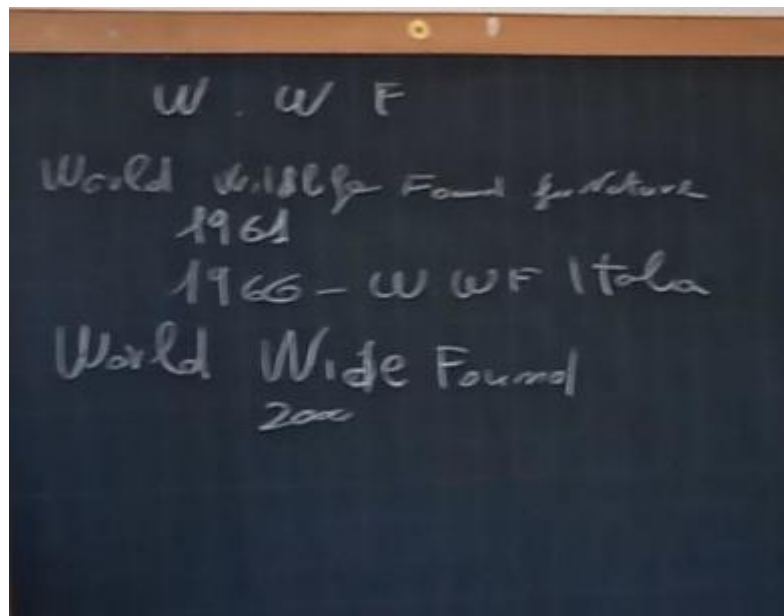 W. W F
World Wildlife Found for Nature
1961
1966 - W WF Italia
World Wide Found
2000